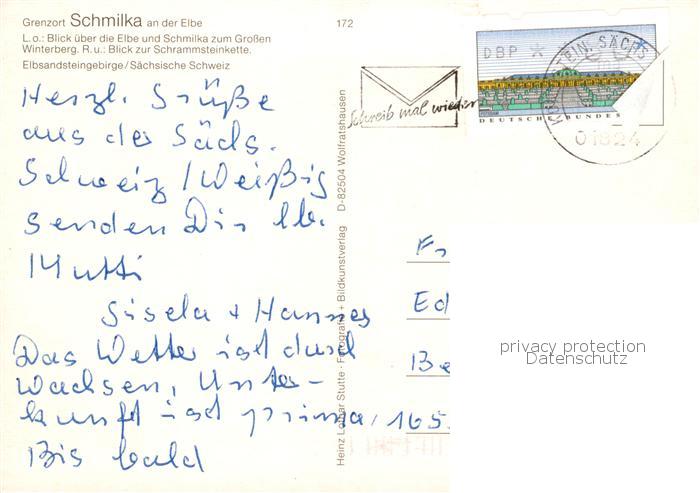 Grenzort Schmilka an der Elbe
172
L. o.: Blick über die Elbe und Schmilka zum Großen
Winterberg. R. u.: Blick zur Schrammsteinkette.
Elbsandsteingebirge/Sächsische Schweiz
Herzl. Grüße
aus der Sächs.
Schweiz/Weißig
senden Dir lb.
Mutti
Gisela + Hannes
Das Wetter ist durch
wachsen, Unter-
kunft ist prima,
Bis bald
Heinz Lothar Stutte · Fotografie + Bildkunstverlag D-82504 Wolfratshausen
Schreib mal wieder
DBP *
DEUTSCHE BUNDES
STEIN, SÄCHS
01824
Fr
Ed
Be
165
privacy protection
Datenschutz